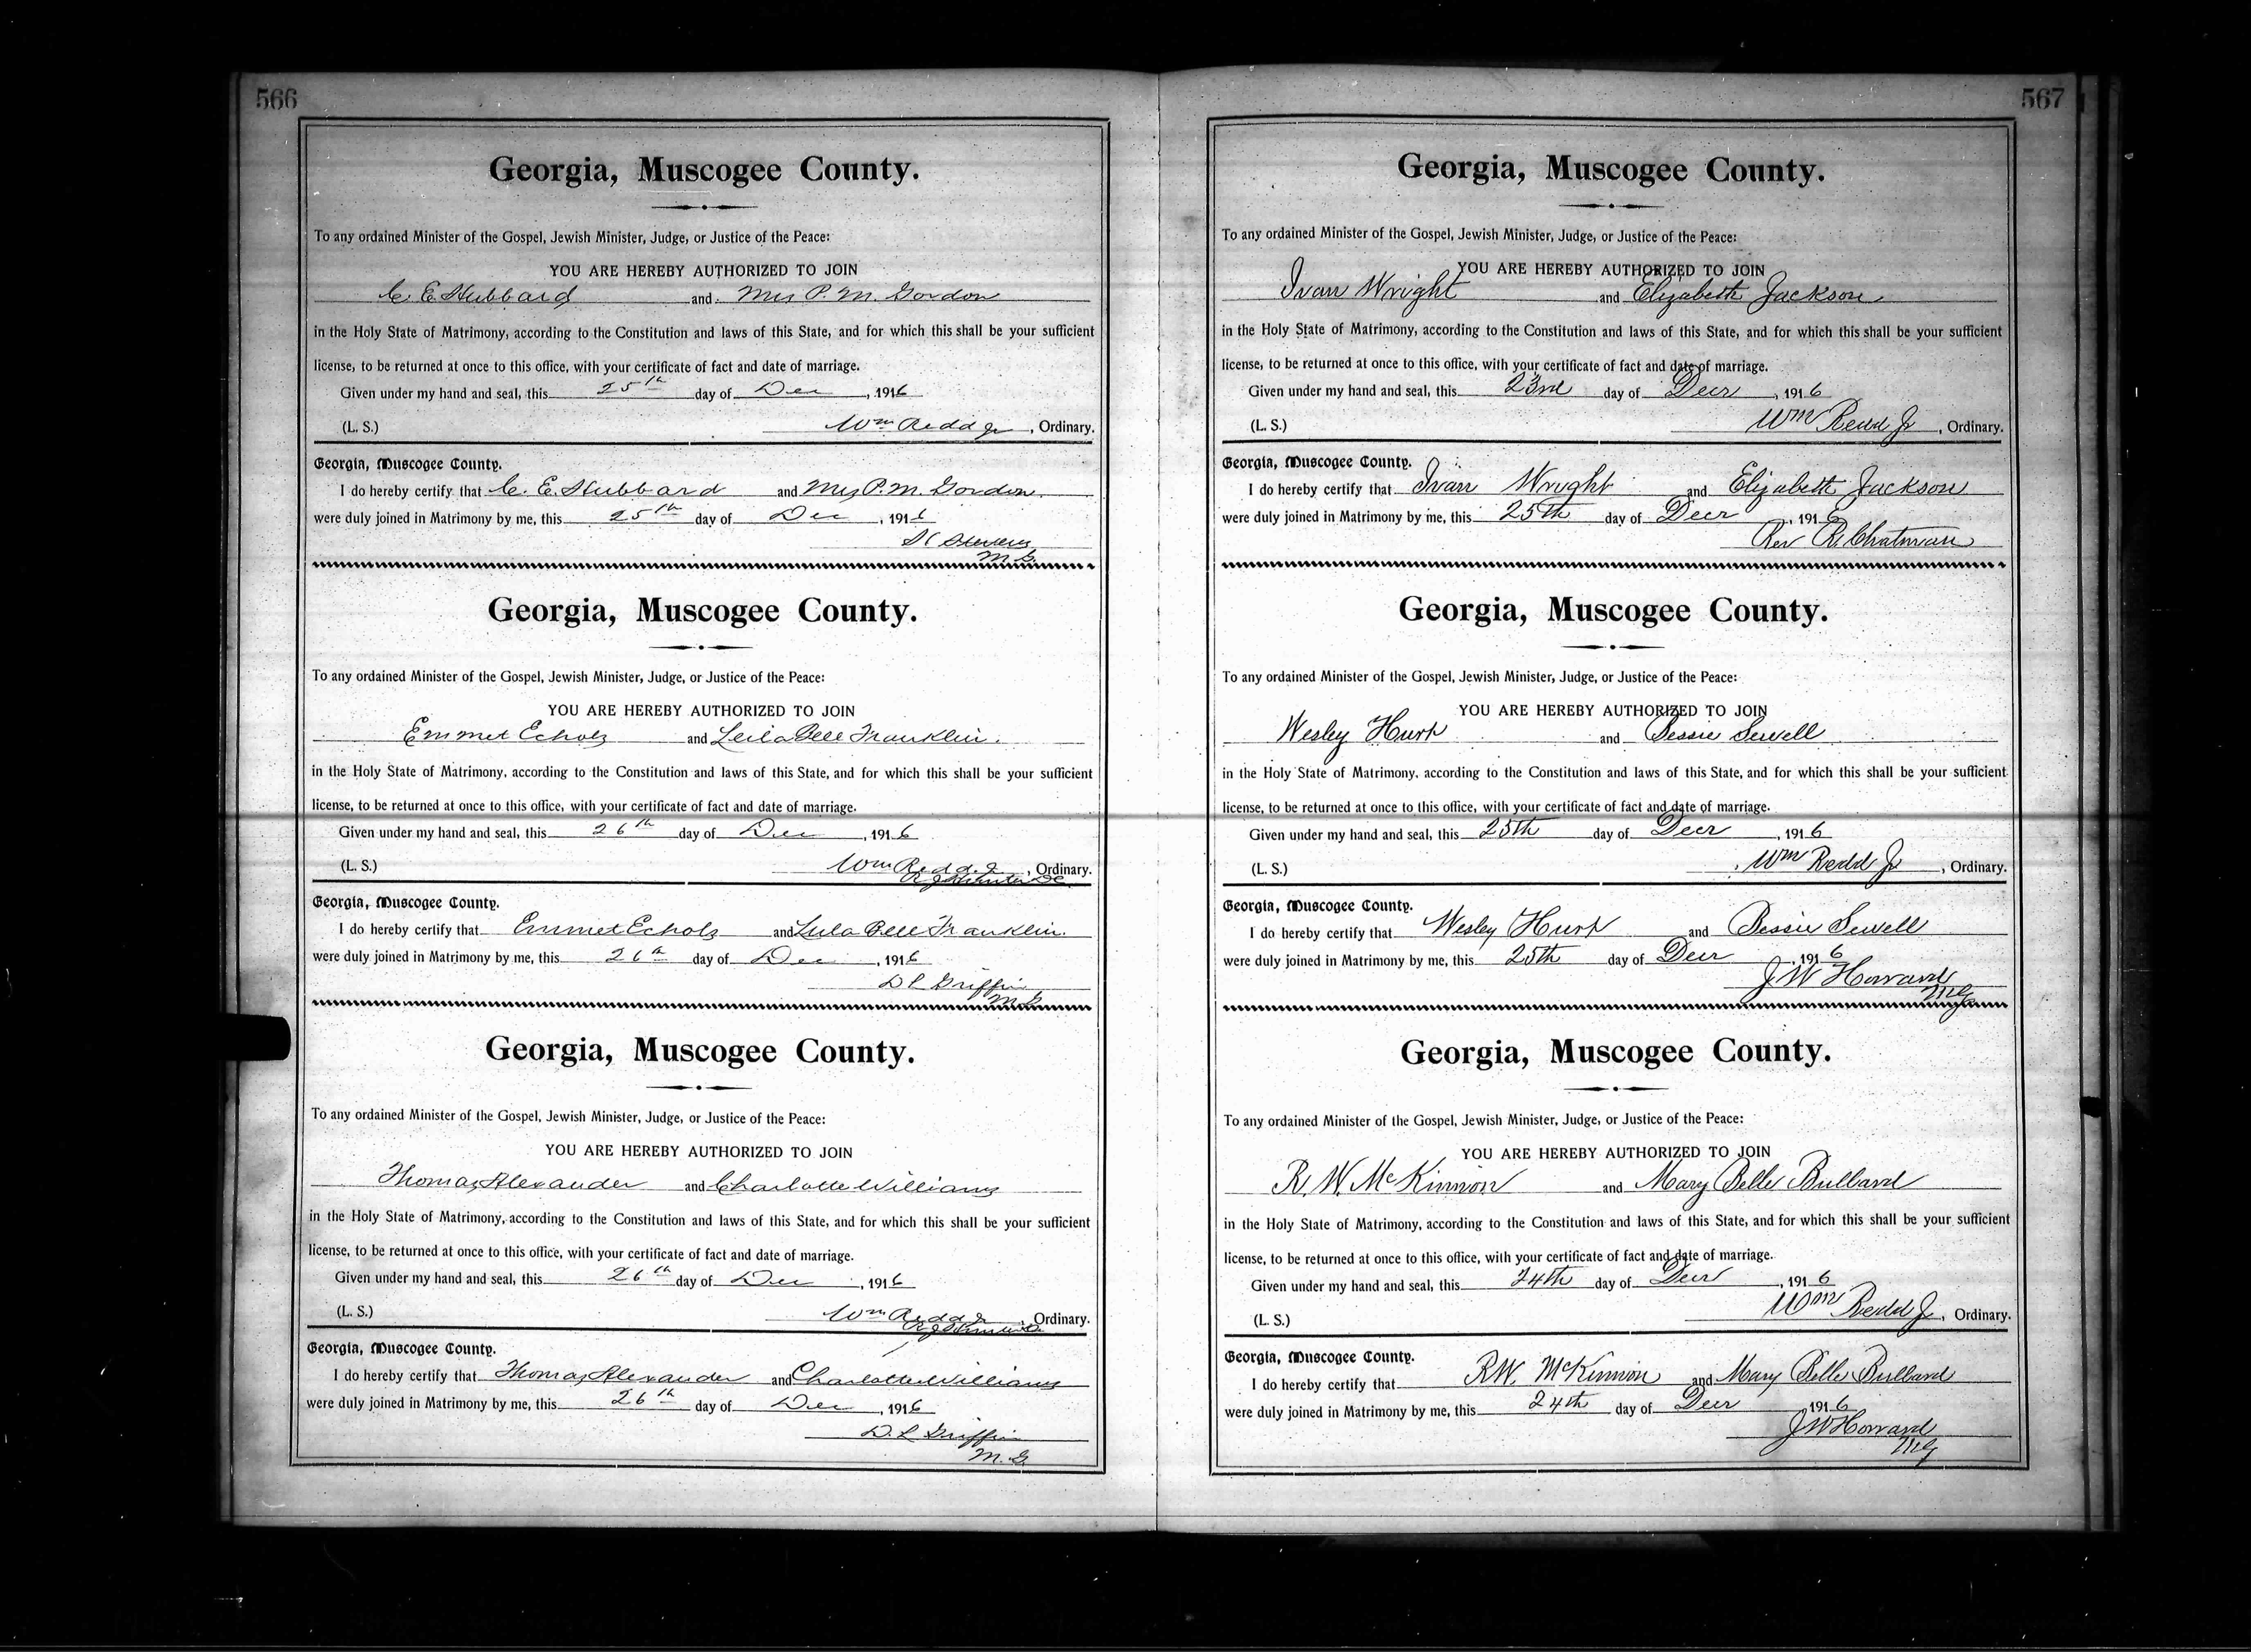 566
Georgia, Muscogee County.
To any ordained Minister of the Gospel, Jewish Minister, Judge, or Justice of the Peace:
YOU ARE HEREBY AUTHORIZED TO JOIN
C. E. Hubbard and Mrs P. M. Gordon
in the Holy State of Matrimony, according to the Constitution and laws of this State, and for which this shall be your sufficient
license, to be returned at once to this office, with your certificate of fact and date of marriage.
Given under my hand and seal, this 25th day of Dec, 1916
(L. S.) Wm Redd Jr, Ordinary.
Georgia, Muscogee County.
I do hereby certify that C. E. Hubbard and Mrs P. M. Gordon
were duly joined in Matrimony by me, this 25th day of Dec, 1916
M. G.
Georgia, Muscogee County.
To any ordained Minister of the Gospel, Jewish Minister, Judge, or Justice of the Peace:
YOU ARE HEREBY AUTHORIZED TO JOIN
Emmet Echols and Leila Bell Franklin.
in the Holy State of Matrimony, according to the Constitution and laws of this State, and for which this shall be your sufficient
license, to be returned at once to this office, with your certificate of fact and date of marriage.
Given under my hand and seal, this 26th day of Dec, 1916
(L. S.) Wm Redd Jr, Ordinary.
Georgia, Muscogee County.
I do hereby certify that Emmet Echols and Lula Bell Franklin.
were duly joined in Matrimony by me, this 26th day of Dec, 1916
D L Griffin
M. G.
Georgia, Muscogee County.
To any ordained Minister of the Gospel, Jewish Minister, Judge, or Justice of the Peace:
YOU ARE HEREBY AUTHORIZED TO JOIN
Thomas Alexander and Charlotte Williams
in the Holy State of Matrimony, according to the Constitution and laws of this State, and for which this shall be your sufficient
license, to be returned at once to this office, with your certificate of fact and date of marriage.
Given under my hand and seal, this 26th day of Dec, 1916
(L. S.) Wm Redd Jr, Ordinary.
Georgia, Muscogee County.
I do hereby certify that Thomas Alexander and Charlotte Williams
were duly joined in Matrimony by me, this 26th day of Dec, 1916
D. L Griffin
M. G.
567
Georgia, Muscogee County.
To any ordained Minister of the Gospel, Jewish Minister, Judge, or Justice of the Peace:
YOU ARE HEREBY AUTHORIZED TO JOIN
Ivan Wright and Elizabeth Jackson
in the Holy State of Matrimony, according to the Constitution and laws of this State, and for which this shall be your sufficient
license, to be returned at once to this office, with your certificate of fact and date of marriage.
Given under my hand and seal, this 23rd day of Decr, 1916
(L. S.) Wm Redd Jr, Ordinary.
Georgia, Muscogee County.
I do hereby certify that Ivan Wright and Elizabeth Jackson
were duly joined in Matrimony by me, this 25th day of Decr, 1916
Rev R. Chatman
Georgia, Muscogee County.
To any ordained Minister of the Gospel, Jewish Minister, Judge, or Justice of the Peace:
YOU ARE HEREBY AUTHORIZED TO JOIN
Wesley Hurt and Bessie Sewell
in the Holy State of Matrimony, according to the Constitution and laws of this State, and for which this shall be your sufficient
license, to be returned at once to this office, with your certificate of fact and date of marriage.
Given under my hand and seal, this 25th day of Decr, 1916
(L. S.) Wm Redd Jr, Ordinary.
Georgia, Muscogee County.
I do hereby certify that Wesley Hurt and Bessie Sewell
were duly joined in Matrimony by me, this 25th day of Decr, 1916
J W Howard
MG
Georgia, Muscogee County.
To any ordained Minister of the Gospel, Jewish Minister, Judge, or Justice of the Peace:
YOU ARE HEREBY AUTHORIZED TO JOIN
R. W. McKinnon and Mary Belle Bullard
in the Holy State of Matrimony, according to the Constitution and laws of this State, and for which this shall be your sufficient
license, to be returned at once to this office, with your certificate of fact and date of marriage.
Given under my hand and seal, this 24th day of Decr, 1916
(L. S.) Wm Redd Jr, Ordinary.
Georgia, Muscogee County.
I do hereby certify that R W. McKinnon and Mary Belle Bullard
were duly joined in Matrimony by me, this 24th day of Decr, 1916
J W Howard
MG